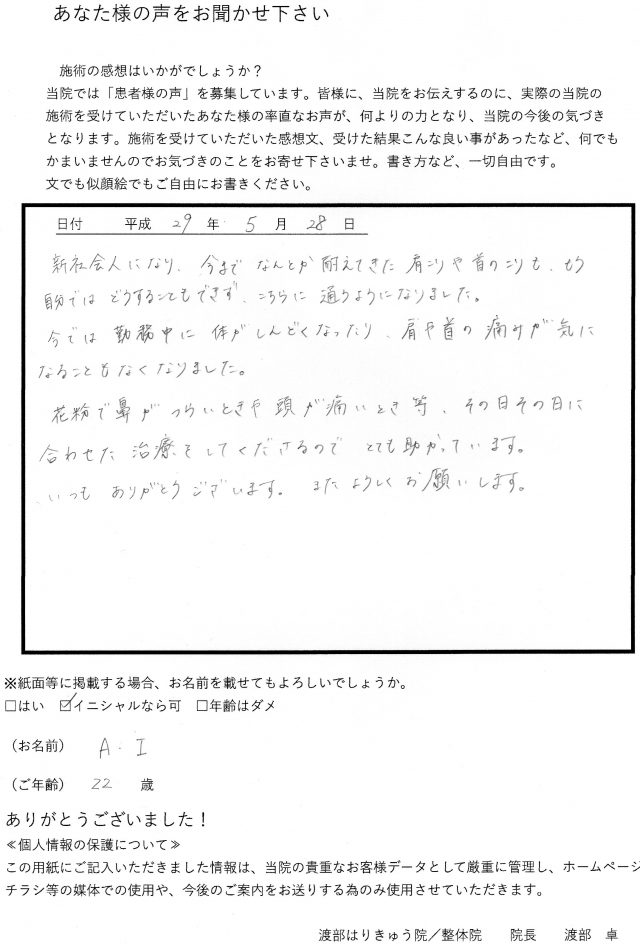 あなた様の声をお聞かせ下さい
施術の感想はいかがでしょうか？
当院では「患者様の声」を募集しています。皆様に、当院をお伝えするのに、実際の当院の
施術を受けていただいたあなた様の率直なお声が、何よりの力となり、当院の今後の気づき
となります。施術を受けていただいた感想文、受けた結果こんな良い事があったなど、何でも
かまいませんのでお気づきのことをお寄せ下さいませ。書き方など、一切自由です。
文でも似顔絵でもご自由にお書きください。
日付 平成 29 年 5 月 28 日
新社会人になり、今まで なんとか 耐えてきた 肩こりや首のこりも、もう
自分では どうすることもできず、こちらに 通うようになりました。
今では 勤務中に 体がしんどくなったり、肩や首の痛みが気に
なることもなくなりました。
花粉で鼻が つらいときや頭が痛いとき等、その日その日に
合わせた 治療をしてくださるので とても助かっています。
いつも ありがとうございます。 またよろしくお願いします。
※紙面等に掲載する場合、お名前を載せてもよろしいでしょうか。
□はい ☑イニシャルなら可 □年齢はダメ
（お名前） A．I
（ご年齢） 22 歳
ありがとうございました！
≪個人情報の保護について≫
この用紙にご記入いただきました情報は、当院の貴重なお客様データとして厳重に管理し、ホームページ
チラシ等の媒体での使用や、今後のご案内をお送りする為のみ使用させていただきます。
渡部はりきゅう院／整体院 院長 渡部 卓